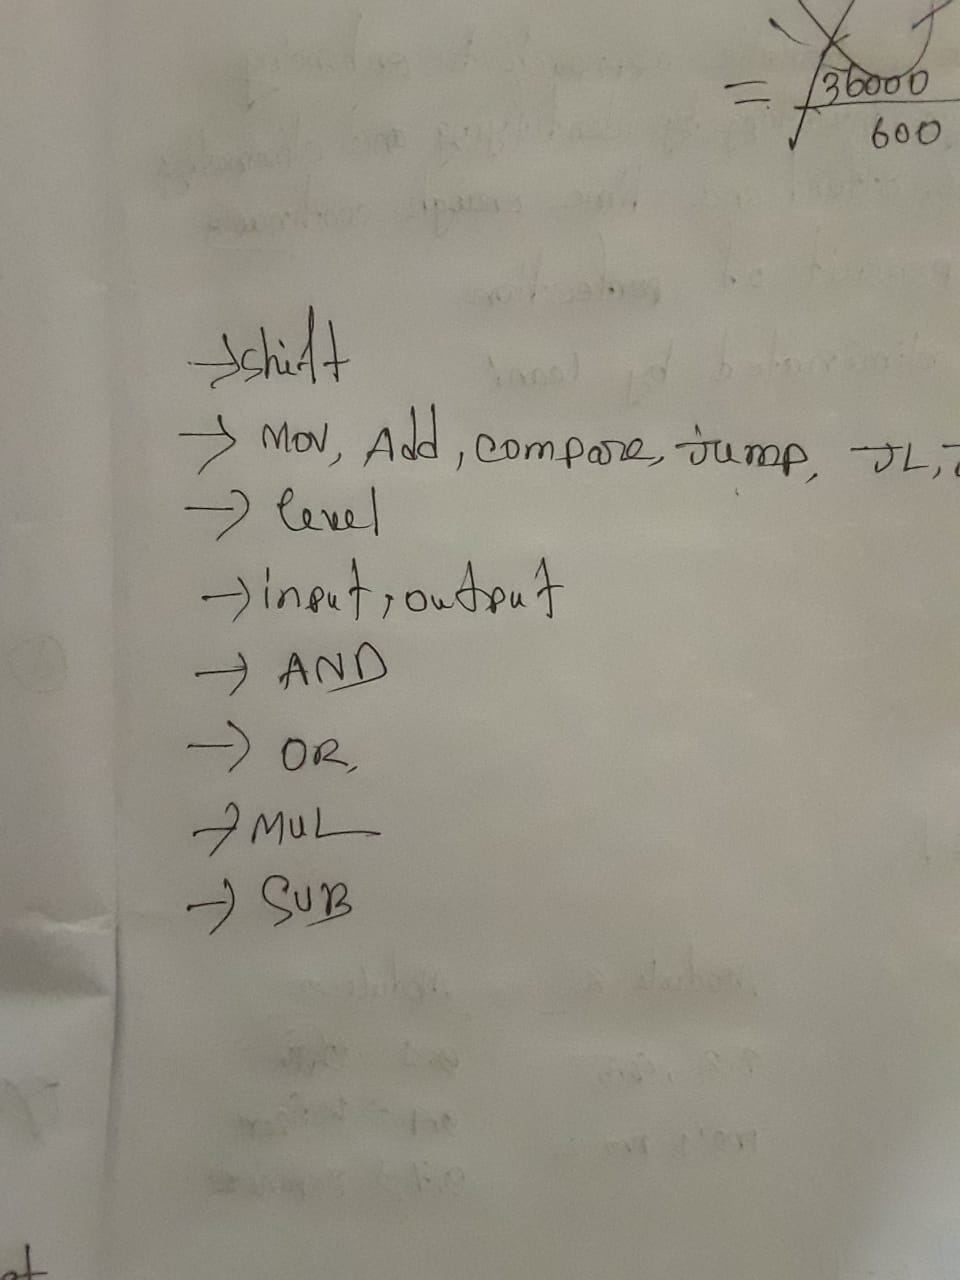 = √36000
600
→ shift
→ Mov, Add, compare, Jump, JL,
→ level
→ input, output
→ AND
→ OR,
→ MUL
→ SUB